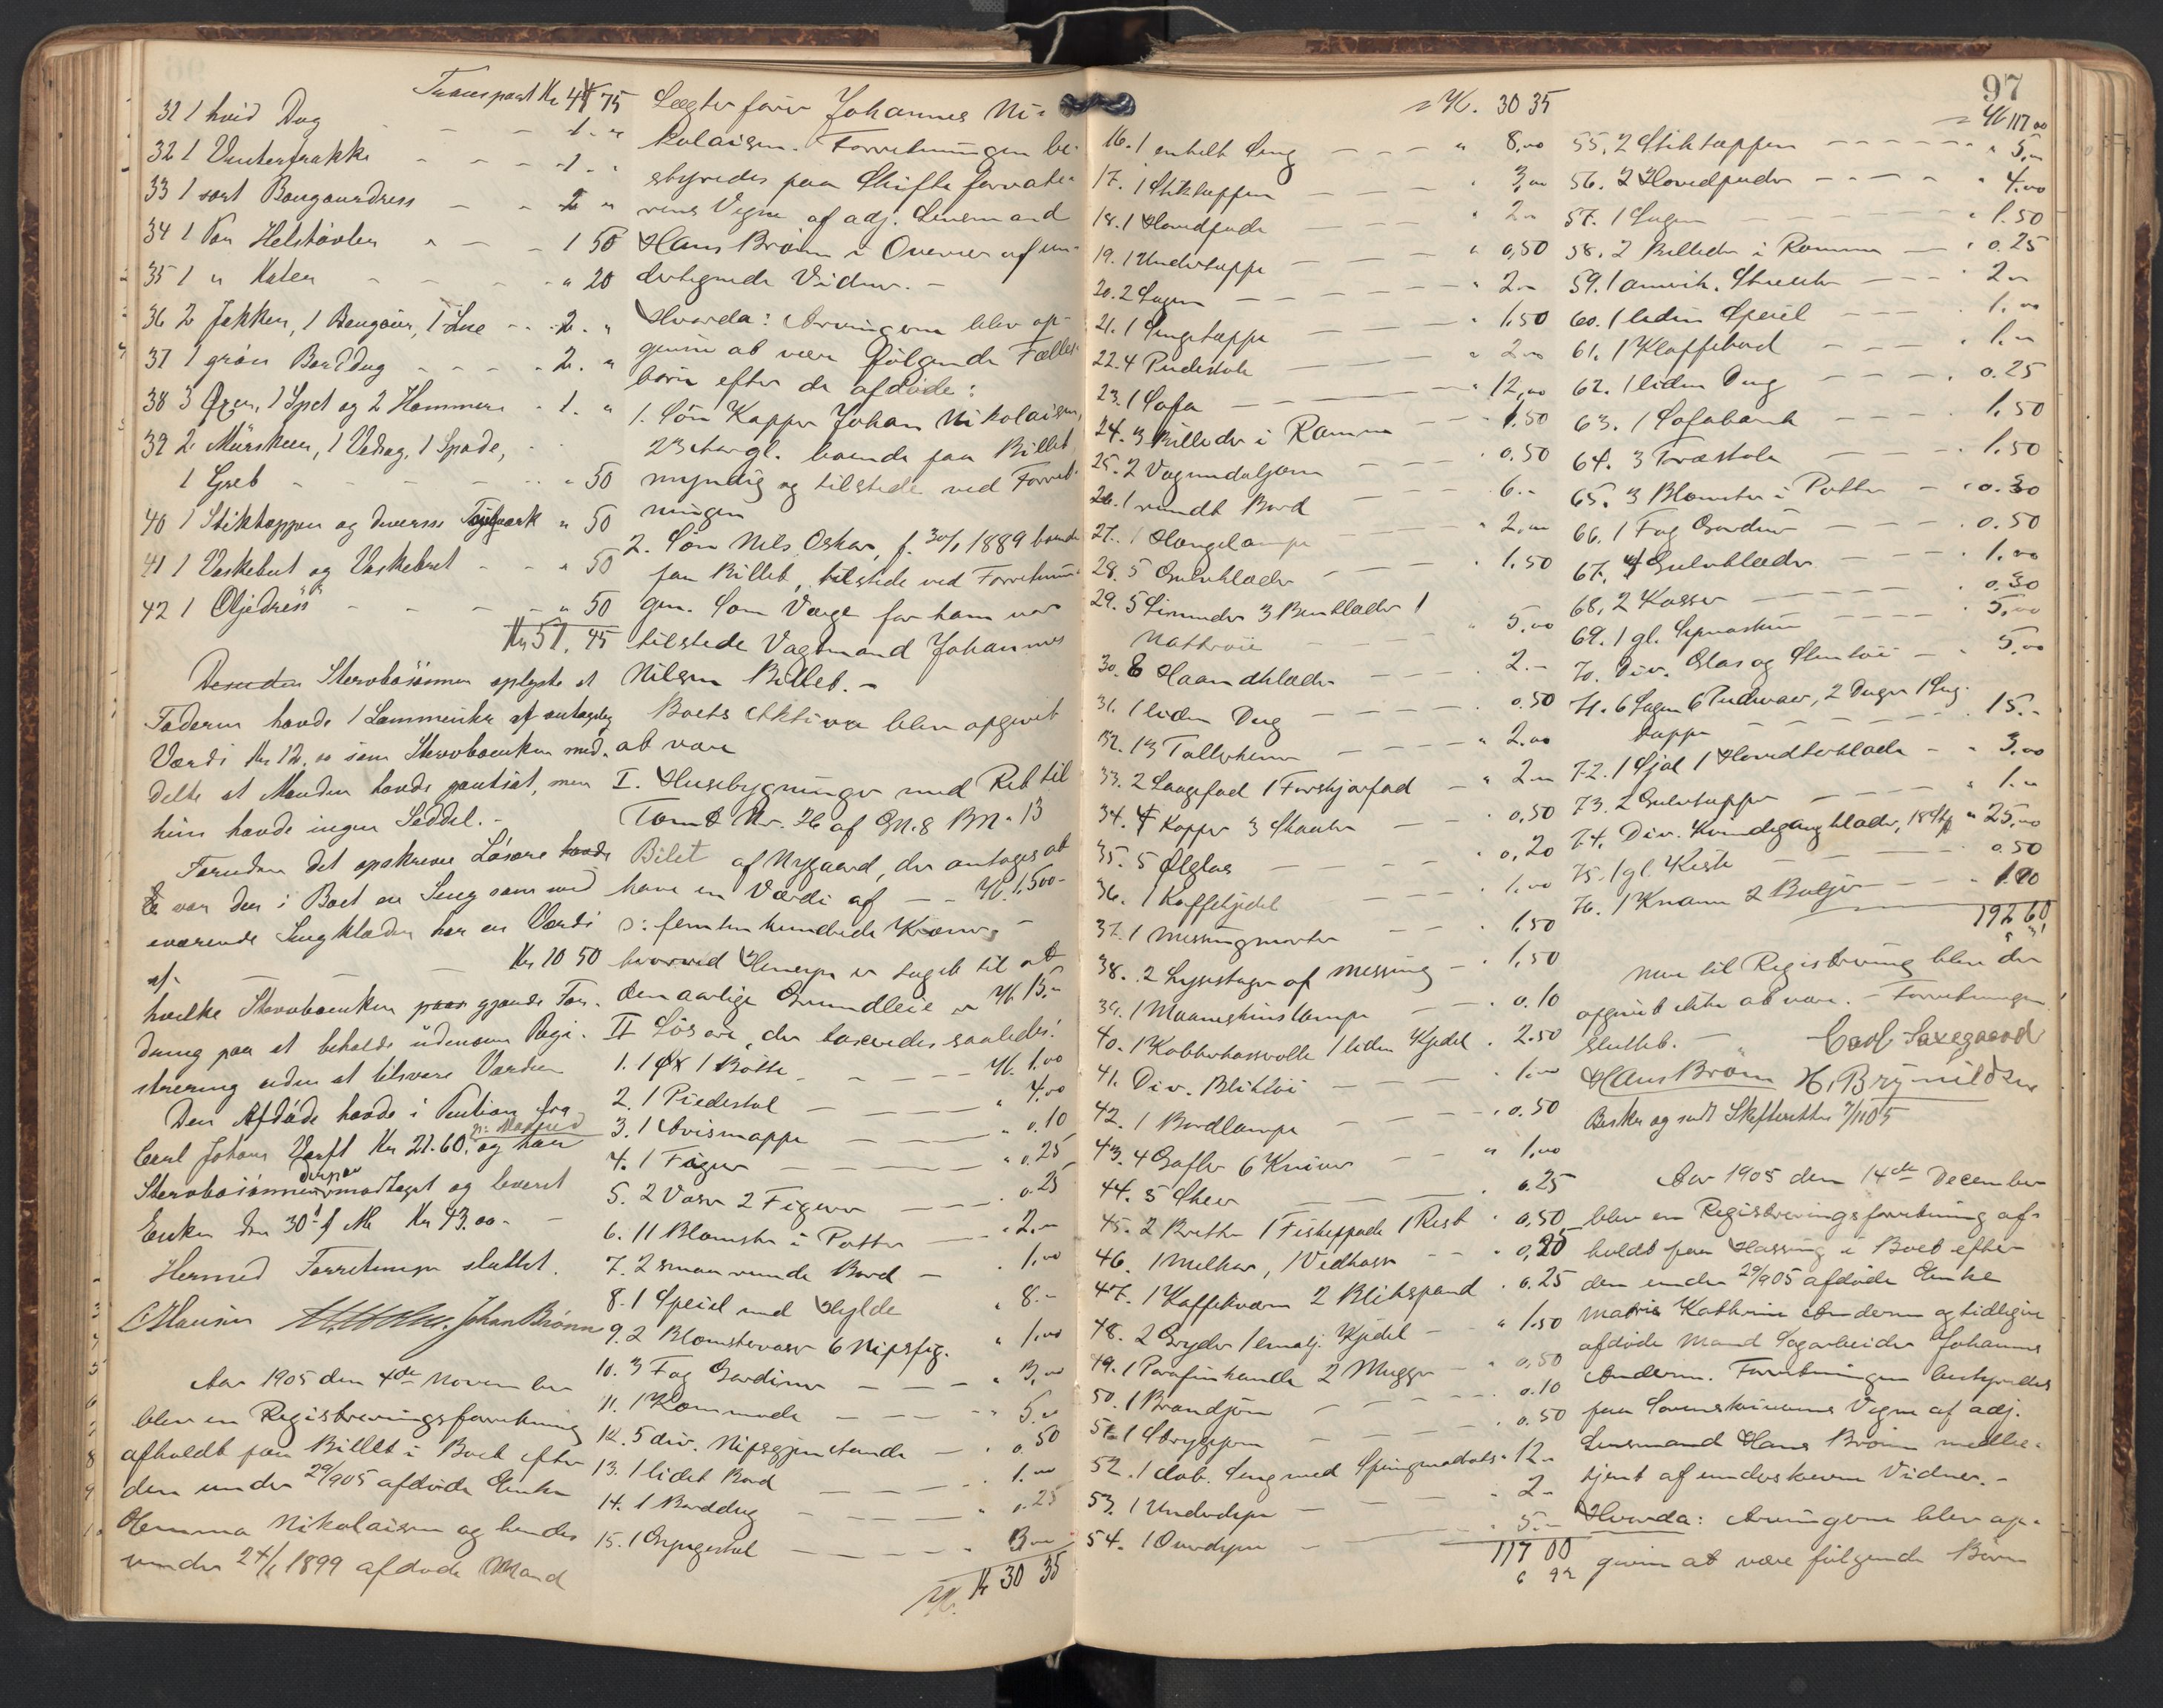 Transport Kr 41 75
31 1 hvid Dug - - - 1. "
32 1 Vinterfrakke - - - - 1. "
33 1 sort Bongourdress - - 2 "
34 1 Par Helstövler " - - 1 50
35 1 " Kalosher - - - " 20
36 2 Jakker, 1 Bongour, 1 Lue - - 2. "
37 1 grön Borddug - - - - 2. "
38 3 Öxer, 1 Spet og 2 Hammere - 1. "
39 2 Murskeer, 1 Vedsag, 1 Spade,
1 Greb - - - - - - " 50
40 1 Stiktæppe og diverse Tougværk " 50
41 1 Vaskebut og Vaskebret - - " 50
42 1 Oljedress - - - - - " 50
Kr 51. 45
Desuden Stervbosönnen oplyste at
Faderen havde 1 Lommeuhr af antagelig
Værdi Kr 12.00 som Stervboenken med-
delte at Manden havde pantsat, men
hun havde ingen Seddel. -
Foruden det opskrevne Lösöre havde
var der i Boet en Seng som med
sværende Sengklæder har en Værdi
af - - - Kr 10 50
hvilke Stervboenken gjorde For-
dring paa at beholde udenom Regi-
strering uden at tilsvare Værdien
Den Afdöde havde i Pention fra
Carl Johans Værft Kr 21.60. pr. Maaned og har
Stervbosönnen derpaa modtaget og leveret
Enken den 30te f. M. Kr 43.00. -
Hermed Forretningen sluttet.
C Hansen Johan Brönn
Aar 1905 den 4de November
blev en Registreringsforretning
afholdt paa Billet i Boet efter
den under 29/9 05 afdöde Enke
Hemma Nikolaisen og hendes
under 24/1 1899 afdöde Mand
Johannes Ni-
kolaisen. Forretningen be-
styredes paa Skifteforvalte-
rens Vegne af adj. Lensmand
Hans Brönn i Overvær af un-
dertegnede Vidner. -
Hvorda: Arvingerne blev op-
givne at være fölgende Fælles-
börn efter de afdöde:
1. Sön Kapper Johan Nikolaisen,
23 Aar gl. boende paa Billet
myndig og tilstede ved Forret-
ningen
2. Sön Nils Oskar, f. 30/1 1889 boende
paa Billet, tilstede ved Forretnin-
gen. Som Værge for ham var
tilstede Vagtmand Johannes
Nilsen Billet. -
Boets Aktiva blev opgivet
at være
I. Husebygninger med Ret til
Tomt Nr. 26 af Gn. 8 Bn. 13
Bilet af Nygaard, der antages at
have en Værdi af - - Kr. 1.500 -
: femten hundrede Kroner, -
hvorved Hensyn er taget til at
den aarlige Grundleie er Kr. 15.-
II Lösöre, der taxeredes saaledes:
1. 1 Öx 1 Bötte - - - - - Kr. 1.00
2. 1 Piedestal - - - - - " 4.00
3. 1 Avismappe - - - - " 0.10
4. 1 Figur - - - - - " 0.25
5. 2 Vaser 2 Figurer - - - . 0.25
6. 11 Blomster i Potter - - . 2.-
7. 2 smaa runde Bord - . 1.00
8. 1 Speil med Hylde " 8.-
9. 2 Blomstervaser 6 Nipsfig. " 1.00
10. 3 Fag Gardiner - - - - " 3.00
11. 1 Kommode - - - - - " 5.00
12. 5 div. Nipsgjenstande - . 0.50
13. 1 lidet Bord - - - - - . 1.00
14. 1 Borddug - - - - - " 0.25
15. 1 Gyngestol - - - - - " 3.00
Kr 30 35
97
Kr. 30 35
16. 1 enkelt Seng - - - " 8.00
17. 1 Stiktæppe - - - - . 3.00
18. 1 Hovedpude - - - - . 2.-
19. 1 Undertæppe - - - - " 0,50
20. 2 Lagen - - - - - " 2.-
21. 1 Sengetæppe - - - - . 1.50
22. 4 Pindestole - - - - " 2.00
23. 1 Sofa - - - - - - . 12,00
24. 3 Billeder i Ramme - - - 1.50
25. 2 Vægmedaljon - - - . 0.50
26. 1 rundt Bord - - - - . 6.-
27. 1 Hængelampe - - - - " 2.00
28. 5 Gulvklæder - - - - . 1.50
29. 5 Linneder 3 Benklæder 1
Nattröie - - - - " 5.00
30. 8 Haandklæder - - - - 2.-
31. 1 liden Dug - - - - - . 0.50
32. 13 Tallerkener - - - - " 2.00
33. 2 Laagefad 1 Forskjærfad - " 2.-
34. 4 Kopper 3 Skaaler - - . 0,50
35. 5 Ølglas - - - - - . 0,20
36. 1 Kaffekjedel - - - - . 1.00
37. 1 Messingmorter - - . 1.50
38. 2 Lysestager af Messing - . 1,50
39. 1 Maaneskinslampe - . 0.10
40. 1 Kobberkasserolle 1 liden Kjedel . 2.50
41. Div. Bliktöi - - - - . 1.-
42. 1 Bordlampe - - - - . 0.50
43. 4 Gafler 6 Kniver - - " 1,00
44. 5 Skeer - - - - - - . 0.25
45. 2 Bretter 1 Fiskespade 1 Rist . 0,50
46. 1 Melkar, 1 Vedkasse - - . 0,20
47. 1 Kaffekværn 2 Blikspand . 0.25
48. 2 Gryder 1 emalj. Kjedel - " 1.50
49. 1 Parafinkande 2 Mugger - . 0,50
50. 1 Brandjern - - - - . 0.10
51. 1 Strygejern - - - - . 0.50
52. 1 dob. Seng med Springmadrats . 12.-
53. 1 Underdyne - - - - . 2-
54. 1 Overdyne - - - - . 5.-
117 00
Kr 117 00
55. 2 Stiktæpper - - - - - . " 5.-
56. 2 Hovedpuder - - - - . 4.00
57. 1 Lagen - - - - - - " 1.50
58. 2 Billeder i Ramme - - . 0.25
59. 1 amerik. Strueuhr - - - . 2.-
60. 1 liden Speil - - - - . 1.00
61. 1 Klaffebord - - - - . 1.-
62. 1 liden Dug - - - - . 0.25
63. 1 Sofabænk - - - - . 1.50
64. 3 Træstole - - - - . 1.50
65. 3 Blomster i Potter - - . 0.30
66. 1 Fag Gardiner - - - - . 0.50
67. 4 Gulvklæder - - - - . 1.00
68. 2 Kasser - - - - - . 0.30
69. 1 gl. Symaskin - - - - . 5,00
70. Div. Glas og Stentöi - . 5,00
71. 6 Lagen 6 Pudevaar, 2 Duger 1 Seng-
tæppe - - - - - - - . 15.-
72. 1 Sjal 1 Hovedtörklæde - . 3.00
73. 2 Gulvtæpper - - - - " 1.-
74. Div. Kvindegangklæder, " 25,00
75. 1 gl. Kiste - - - - - . 0.50
76. 1 Knann 2 Baljer - - - 1.00
192 60
Mere til Registrering blev der
opgivet ikke at være. - Forretningen
sluttet. - Carl Saxegaard
Hans Brönn H. Brynildsen
Beskr og sendt Skifteretten 7/11 05
Aar 1905 den 14de December
blev en Registreringsforretning af-
holdt paa Hassing i Boet efter
den under 29/9 05 afdöde Enke
Maria Kathrine Andersen og tidligere
afdöde Mand Sagarbeider Johannes
Andersen. Forretningen bestyredes
paa Sorenskriverens Vegne af adj.
Lensmand Hans Brönn medbe-
tjent af underskrevne Vidner. -
Hvorda: Arvingerne blev op-
givne at være fölgende Börn